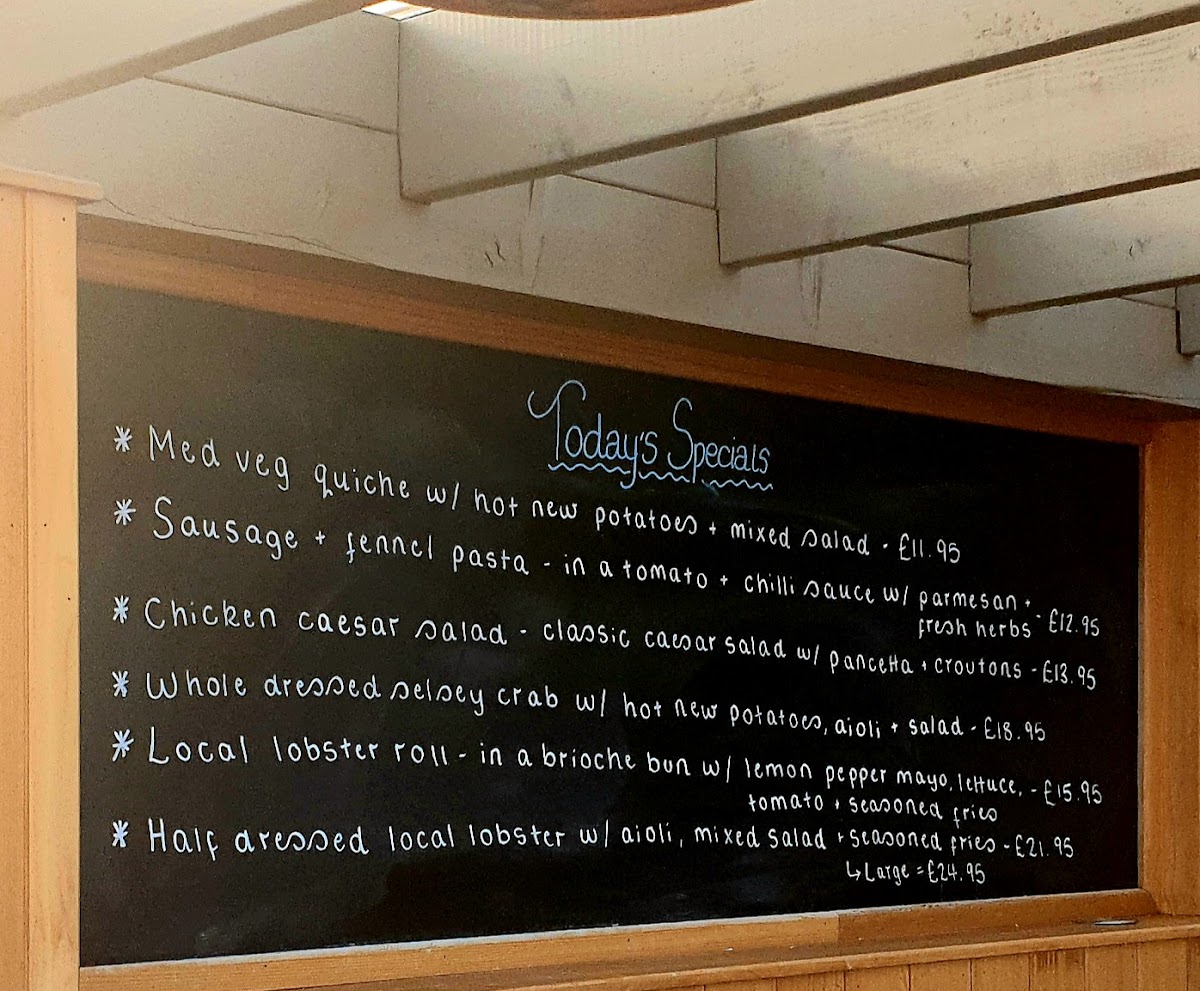 Today's Specials
* Med veg quiche w/ hot new potatoes + mixed salad - £11.95
* Sausage + fennel pasta - in a tomato + chilli sauce w/ parmesan +
fresh herbs - £12.95
* Chicken caesar salad - classic caesar salad w/ pancetta + croutons - £13.95
* Whole dressed selsey crab w/ hot new potatoes, aioli + salad - £18.95
* Local lobster roll - in a brioche bun w/ lemon pepper mayo, lettuce, - £15.95
tomato + seasoned fries
* Half dressed local lobster w/ aioli, mixed salad + seasoned fries - £21.95
↳ Large = £24.95